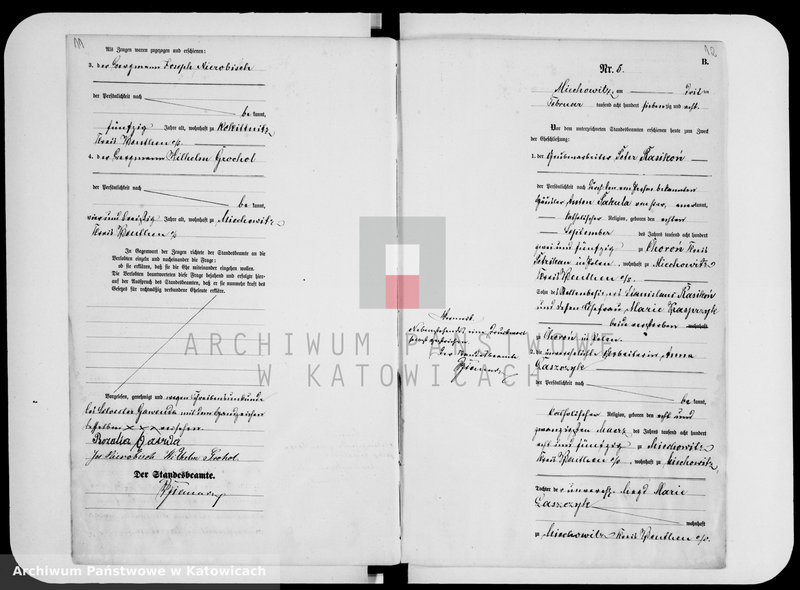 11
Als Zeugen waren zugezogen und erschienen:
3. der Bergmann Joseph Nierobisch
der Persönlichkeit nach
be kannt,
fünfzig Jahre alt, wohnhaft zu Rokittnitz
Kreis Beuthen o/s.
4. der Bergmann Wilhelm Grochol
der Persönlichkeit nach
be kannt,
vier und dreißig Jahre alt, wohnhaft zu Miechowitz
Kreis Beuthen o/s
In Gegenwart der Zeugen richtete der Standesbeamte an die
Verlobten einzeln und nacheinander die Frage:
ob sie erkläre, daß sie die Ehe miteinander eingehen wollen.
Die Verlobten beantworteten diese Frage bejahend und erfolgte hier-
auf der Ausspruch des Standesbeamten, daß er sie nunmehr kraft des
Gesetzes für rechtmäßig verbundene Eheleute erkläre.
Vorgelesen, genehmigt und wegen Schreibensunkunde
Gawenda mit dem Handzeichen
desselben x x x versehen.
Rozalia
Jos Nierobisch Wilhelm Grohol
Der Standesbeamte.
12
B.
Nr. 5.
Miechowitz am
Februar tausend acht hundert siebenzig und acht.
Vor dem unterzeichneten Standesbeamten erschienen heute zum Zweck
der Eheschließung:
1. der Grubenarbeiter Peter Kasikoń
der Persönlichkeit nach
Häusler Anton Sakula von hier, anerkannt,
katholischer Religion, geboren den
September des Jahres tausend acht hundert
zwei und fünfzig zu Choroń Kreis
in Polen, wohnhaft zu Miechowitz
Kreis Beuthen o/s.
Sohn des Stanislaus Kasikoń
und dessen Ehefrau Marie Kasprzyk
beide verstorben wohnhaft
zu Choroń in Polen.
2. die unverehelichte Arbeiterin Anna
Gaszczyk
der Persönlichkeit nach
be kannt,
katholischer Religion, geboren den acht und
zwanzigsten März des Jahres tausend acht hundert
acht und fünfzig zu Miechowitz
Kreis Beuthen o/s, wohnhaft zu Miechowitz,
Tochter der unvereh. Magd Marie
Gaszczyk
wohnhaft
zu Miechowitz Kreis Beuthen o/s.
Nebenstehendes ein Druckwort
gestrichen
Der Standesbeamte
ARCHIWUM PAŃSTWOWE
W KATOWICACH
Archiwum Państwowe w Katowicach